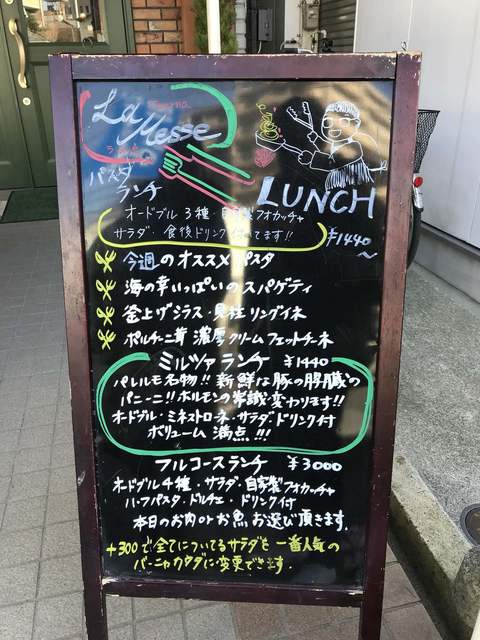 La
Taverna
Messe
ラ・メッセ
LUNCH
パスタ
ランチ
オードブル3種・自家製フォカッチャ
サラダ・食後ドリンク付いてます!!
¥1440~
今週のオススメパスタ
海の幸いっぱいのスパゲティ
釜上げシラス・貝柱リングイネ
ポルチーニ茸 濃厚クリームフェットチーネ
ミルツァランチ ¥1440
パレルモ名物!! 新鮮な豚の脾臓の
パニーニ!! ホルモンの常識変わります!!
オードブル・ミネストローネ・サラダ・ドリンク付
ボリューム満点!!!
フルコースランチ ¥3000
オードブル4種・サラダ・自家製フォカッチャ
ハーフパスタ・ドルチェ・ドリンク付
本日のお肉orお魚お選び頂きます.
+300で全てについてるサラダを一番人気の
バーニャカウダに変更できます.